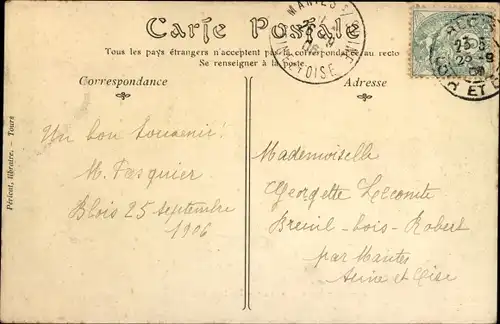 Carte Postale
Tous les pays étrangers n'acceptent pas la correspondance au recto
Se renseigner à la poste
Correspondance
Adresse
Péricat, libraire. - Tours
Un bon Souvenir!
M. Pasquier
Blois 25 septembre
1906
Mademoiselle
Georgette Lecomte
Breuil-bois-Robert
par Mantes
Seine et Oise